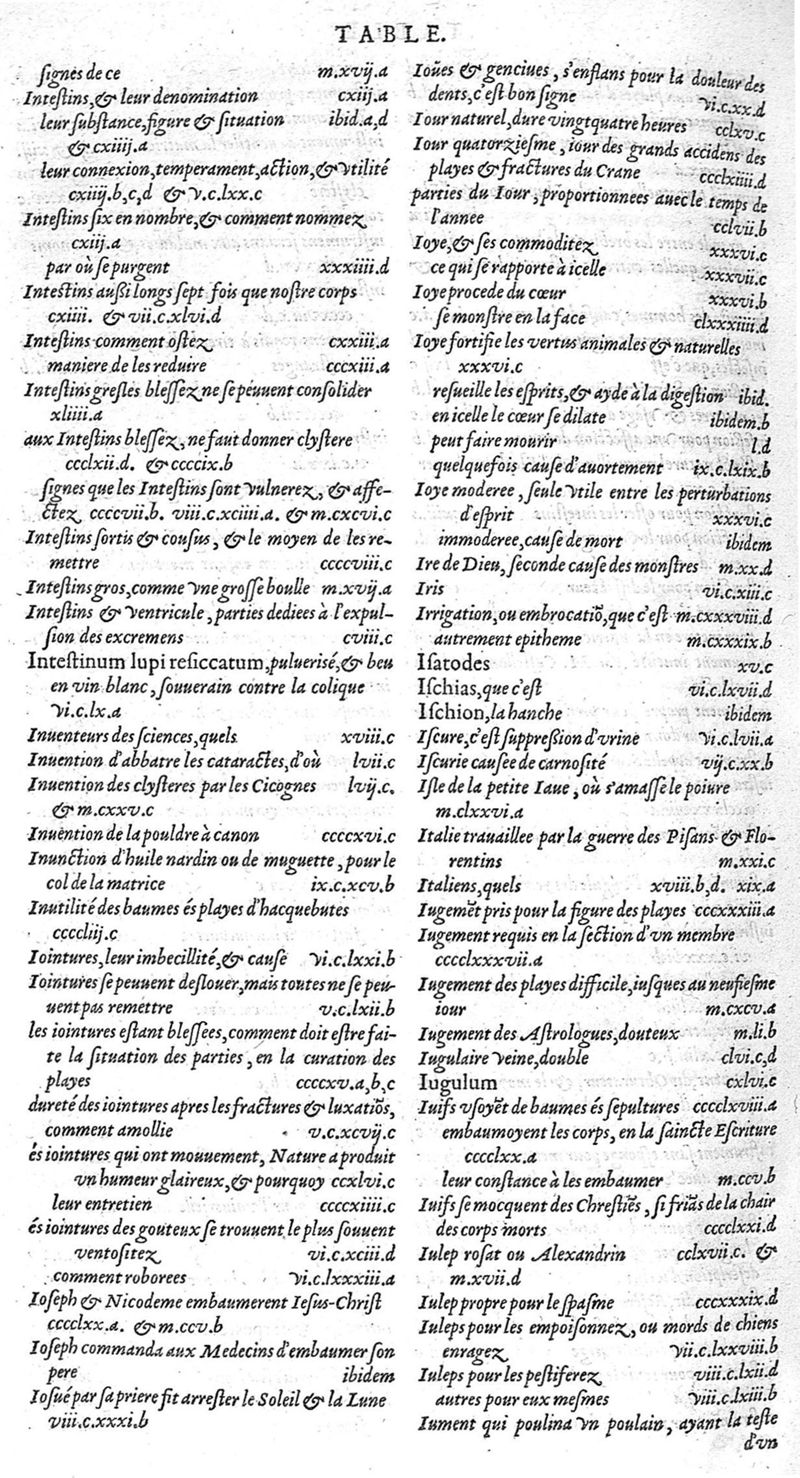 TABLE.
ſignes de ce m.xvij.a
Inteſtins,& leur denomination cxiij.a
leur ſubſtance,figure & ſituation ibid.a,d
& cxiiij.a
leur connexion,temperament,action,& vtilité
cxiiij.b,c,d & v.c.lxx.c
Inteſtins ſix en nombre,& comment nommez
cxiij.a
par où ſe purgent xxxiiii.d
Inteſtins außi longs ſept fois que noſtre corps
cxiiii. & vii.c.xlvi.d
Inteſtins comment oſtez cxxiii.a
maniere de les reduire cccxiii.a
Inteſtins greſles bleſſez ne ſe peuuent conſolider
xliiii.a
aux Inteſtins bleſſez, ne faut donner clyſtere
ccclxii.d. & ccccix.b
ſignes que les Inteſtins ſont vulnerez, & affe-
ctez ccccvii.b. viii.c.xciiii.a. & m.cxcvi.c
Inteſtins ſortis & couſus, & le moyen de les re-
mettre ccccviii.c
Inteſtins gros, comme vne groſſe boulle m.xvij.a
Inteſtins & ventricule, parties dediees à l'expul-
ſion des excremens cviii.c
Inteſtinum lupi reſiccatum,puluerisé,& beu
en vin blanc, ſouuerain contre la colique
vi.c.lx.a
Inuenteurs des ſciences,quels xviii.c
Inuention d'abbatre les cataractes,d'où lvii.c
Inuention des clyſteres par les Cicognes lvij.c.
& m.cxxv.c
Inuention de la pouldre à canon ccccxvi.c
Inunction d'huile nardin ou de muguette, pour le
col de la matrice ix.c.xcv.b
Inutilité des baumes és playes d'hacquebutes
ccccliij.c
Iointures,leur imbecillité,& cauſe vi.c.lxxi.b
Iointures ſe peuuent deſlouer,mais toutes ne ſe peu-
uent pas remettre v.c.lxii.b
les iointures eſtant bleſſees,comment doit eſtre fai-
te la ſituation des parties, en la curation des
playes ccccxv.a,b,c
dureté des iointures apres les fractures & luxatiõs,
comment amollie v.c.xcvij.c
és iointures qui ont mouuement, Nature a produit
vn humeur glaireux,& pourquoy ccxlvi.c
leur entretien ccccxiiii.c
és iointures des gouteux ſe trouuent le plus ſouuent
ventoſitez vi.c.xciii.d
comment roborees vi.c.lxxxiii.a
Ioſeph & Nicodeme embaumerent Ieſus-Chriſt
cccclxx.a. & m.ccv.b
Ioſeph commanda aux Medecins d'embaumer ſon
pere ibidem
Ioſué par ſa priere fit arreſter le Soleil & la Lune
viii.c.xxxi.b
Ioües & genciues, s'enflans pour la douleur des
dents,c'eſt bon ſigne vi.c.xx.d
Iour naturel,dure vingtquatre heures cclxv.c
Iour quatorzieſme, iour des grands accidens des
playes & fractures du Crane ccclxiiii.d
parties du Iour, proportionnees auec le temps de
l'annee cclvii.b
Ioye,& ſes commoditez xxxvi.c
ce qui ſe rapporte à icelle xxxvii.c
Ioye procede du cœur xxxvi.b
ſe monſtre en la face clxxxiiii.d
Ioye fortifie les vertus animales & naturelles
xxxvi.c
reſueille les eſprits,& ayde à la digeſtion ibid.
en icelle le cœur ſe dilate ibidem.b
peut faire mourir l.d
quelquefois cauſe d'auortement ix.c.lxix.b
Ioye moderee, ſeule vtile entre les perturbations
d'eſprit xxxvi.c
immoderee,cauſe de mort ibidem
Ire de Dieu, ſeconde cauſe des monſtres m.xx.d
Iris vi.c.xiii.c
Irrigation,ou embrocatiõ,que c'eſt m.cxxxviii.d
autrement epitheme m.cxxxix.b
Iſatodes xv.c
Iſchias,que c'eſt vi.c.lxvii.d
Iſchion,la hanche ibidem
Iſcure,c'eſt ſuppreßion d'vrine vi.c.lvii.a
Iſcurie cauſee de carnoſité vij.c.xx.b
Iſle de la petite Iaue, où s'amaſſe le poiure
m.clxxvi.a
Italie trauaillee par la guerre des Piſans & Flo-
rentins m.xxi.c
Italiens,quels xviii.b,d. xix.a
Iugemẽt pris pour la figure des playes cccxxxiii.a
Iugement requis en la ſection d'vn membre
cccclxxxvii.a
Iugement des playes difficile,iuſques au neufieſme
iour m.cxcv.a
Iugement des Aſtrologues,douteux m.li.b
Iugulaire veine,double clvi.c,d
Iugulum cxlvi.c
Iuifs vſoyẽt de baumes és ſepultures cccclxviii.a
embaumoyent les corps, en la ſaincte Eſcriture
cccclxx.a
leur conſtance à les embaumer m.ccv.b
Iuifs ſe mocquent des Chreſtiẽs, ſi friãs de la chair
des corps morts cccclxxi.d
Iulep roſat ou Alexandrin cclxvii.c. &
m.xvii.d
Iulep propre pour le ſpaſme cccxxxix.d
Iuleps pour les empoiſonnez, ou mords de chiens
enragez vii.c.lxxviii.b
Iuleps pour les peſtiferez viii.c.lxii.d
autres pour eux meſmes viii.c.lxiii.b
Iument qui poulina vn poulain, ayant la teſte
d'vn